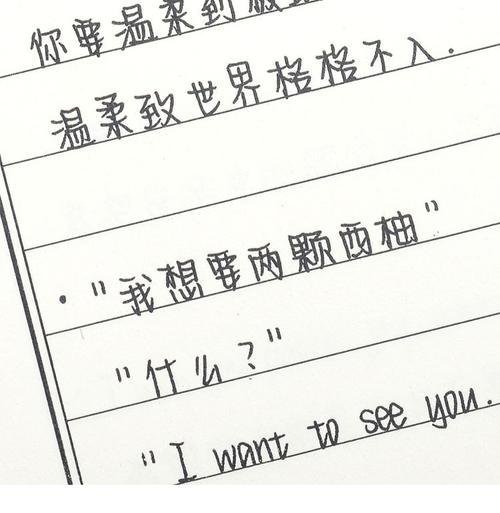 你要温柔到
温柔致世界格格不入.
·"我想要两颗西柚"
"什么?"
"I want to see you.